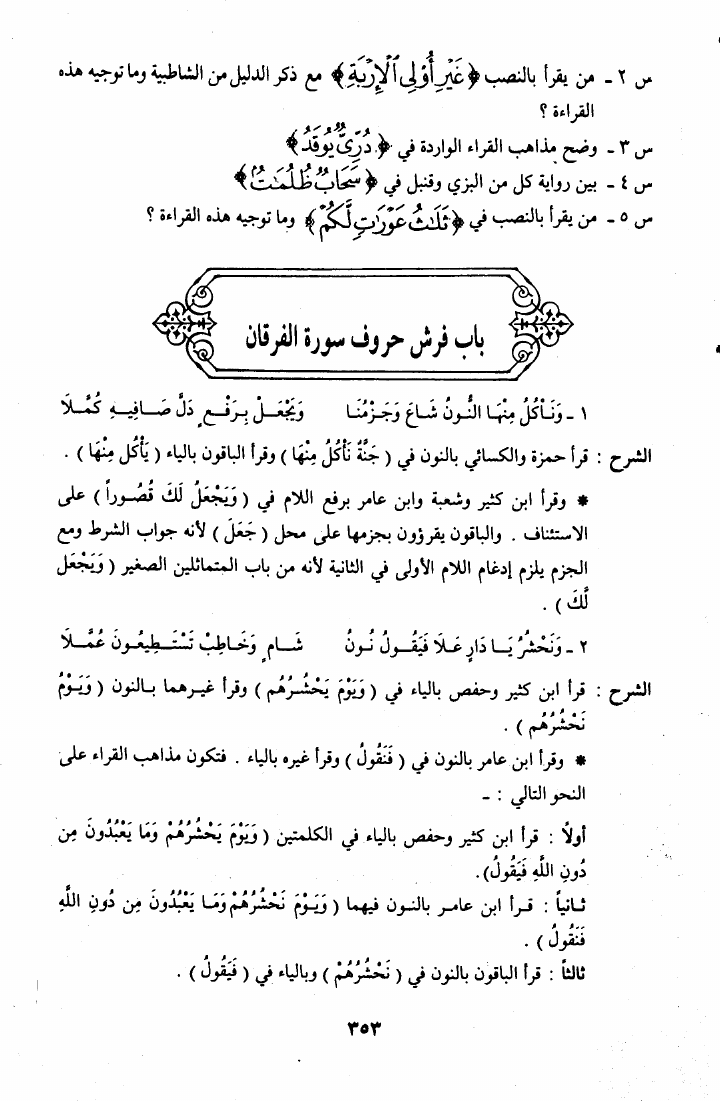 س ٢ - من يقرأ بالنصب ﴿غَيْرِ أُوْلِى ٱلْإِرْبَةِ﴾ مع ذكر الدليل من الشاطبية وما توجيه هذه
القراءة ؟
س ٣ - وضح مذاهب القراء الواردة في ﴿دُرِّىٌّ يُوقَدُ﴾
س ٤ - بين رواية كل من البزي وقنبل في ﴿سَحَابٌ ظُلُمَٰتٌ﴾
س ٥ - من يقرأ بالنصب في ﴿ثَلَٰثُ عَوْرَٰتٍ لَّكُمْ﴾ وما توجيه هذه القراءة ؟
باب فرش حروف سورة الفرقان
١ - وَنَأْكُلُ مِنْهَا النُّونُ شَاعَ وَجَزْمُنَا وَيَجْعَلْ بِرَفْعٍ دَلَّ صَافِيهِ كُمَّلَا
الشرح : قرأ حمزة والكسائي بالنون في ( جَنَّةٌ نَأْكُلُ مِنْهَا ) وقرأ الباقون بالياء ( يَأْكُل مِنْهَا ) .
* وقرأ ابن كثير وشعبة وابن عامر برفع اللام في ( وَيَجْعَلُ لَكَ قُصُوراً ) على
الاستئناف . والباقون يقرؤون بجزمها على محل ( جَعَلَ ) لأنه جواب الشرط ومع
الجزم يلزم إدغام اللام الأولى في الثانية لأنه من باب المتماثلين الصغير ( وَيَجْعَل
لَّكَ ) .
٢ - وَنَحْشُرُ يَا دَارٍ عَلَا فَيَقُولُ نُونُ شَامٍ وَخَاطِبْ تَسْتَطِيعُونَ عُمَّلَا
الشرح : قرأ ابن كثير وحفص بالياء في ( وَيَوْمَ يَحْشُرُهُم ) وقرأ غيرهما بالنون ( وَيَوْمَ
نَحْشُرُهُم ) .
* وقرأ ابن عامر بالنون في ( فَنَقُولُ ) وقرأ غيره بالياء . فتكون مذاهب القراء على
النحو التالي : -
أولاً : قرأ ابن كثير وحفص بالياء في الكلمتين ( وَيَوْمَ يَحْشُرُهُمْ وَمَا يَعْبُدُونَ مِن
دُونِ اللَّهِ فَيَقُولُ).
ثانياً : قرأ ابن عامر بالنون فيهما ( وَيَوْمَ نَحْشُرُهُمْ وَمَا يَعْبُدُونَ مِن دُونِ اللَّهِ
فَنَقُولُ ) .
ثالثاً : قرأ الباقون بالنون في ( نَحْشُرُهُمْ ) وبالياء في ( فَيَقُولُ ) .
٣٥٣